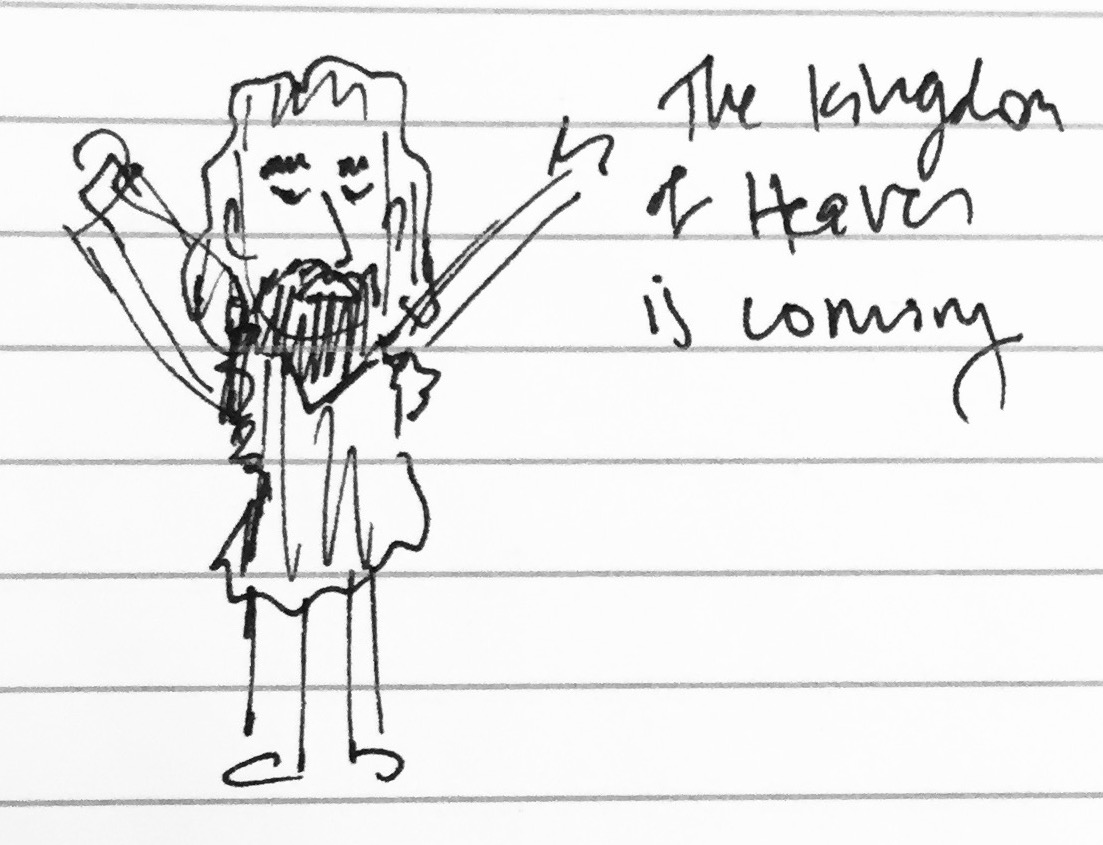 The Kingdom
of Heaven
is coming